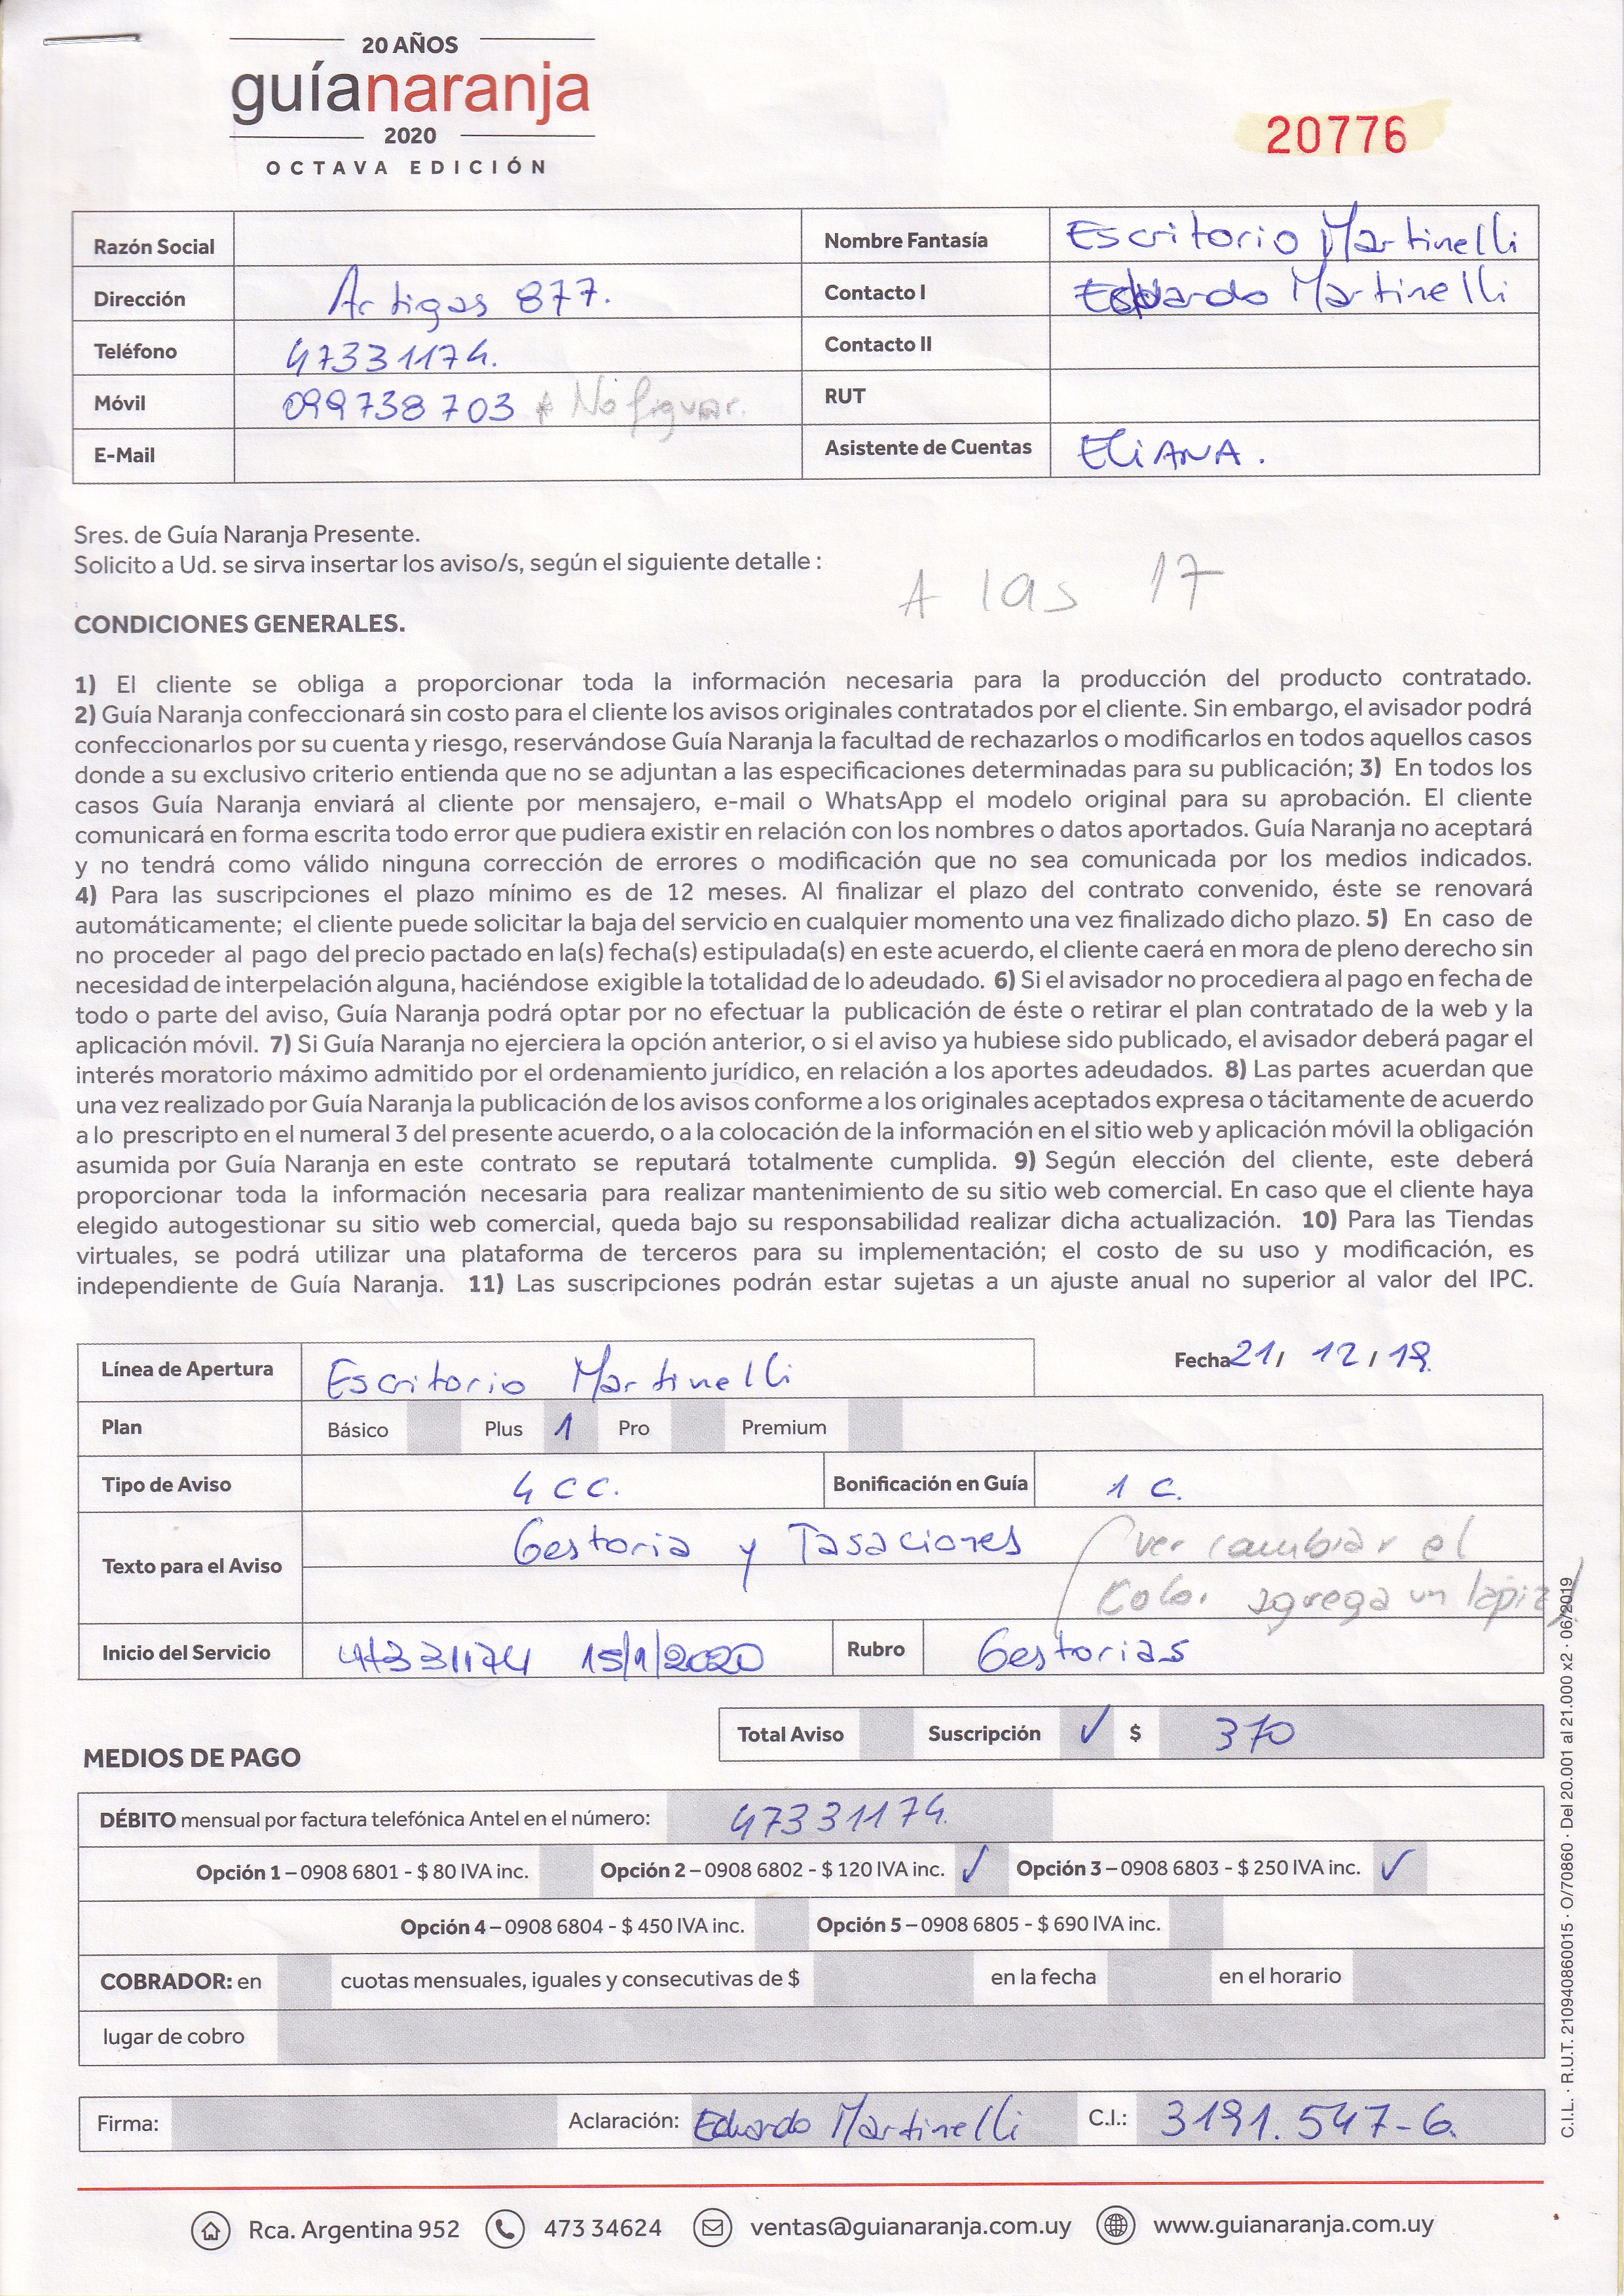 20 AÑOS
guíanaranja
2020
OCTAVA EDICIÓN
20776
Razón Social
Nombre Fantasía Escritorio Martinelli
Dirección Artigas 877.
Contacto I Eduardo Martinelli
Teléfono 47331174.
Contacto II
Móvil 099738703 * No figurar.
RUT
E-Mail
Asistente de Cuentas ELIANA.
Sres. de Guía Naranja Presente.
Solicito a Ud. se sirva insertar los aviso/s, según el siguiente detalle :
A las 17
CONDICIONES GENERALES.
1) El cliente se obliga a proporcionar toda la información necesaria para la producción del producto contratado.
2) Guía Naranja confeccionará sin costo para el cliente los avisos originales contratados por el cliente. Sin embargo, el avisador podrá
confeccionarlos por su cuenta y riesgo, reservándose Guía Naranja la facultad de rechazarlos o modificarlos en todos aquellos casos
donde a su exclusivo criterio entienda que no se adjuntan a las especificaciones determinadas para su publicación; 3) En todos los
casos Guía Naranja enviará al cliente por mensajero, e-mail o WhatsApp el modelo original para su aprobación. El cliente
comunicará en forma escrita todo error que pudiera existir en relación con los nombres o datos aportados. Guía Naranja no aceptará
y no tendrá como válido ninguna corrección de errores o modificación que no sea comunicada por los medios indicados.
4) Para las suscripciones el plazo mínimo es de 12 meses. Al finalizar el plazo del contrato convenido, éste se renovará
automáticamente; el cliente puede solicitar la baja del servicio en cualquier momento una vez finalizado dicho plazo. 5) En caso de
no proceder al pago del precio pactado en la(s) fecha(s) estipulada(s) en este acuerdo, el cliente caerá en mora de pleno derecho sin
necesidad de interpelación alguna, haciéndose exigible la totalidad de lo adeudado. 6) Si el avisador no procediera al pago en fecha de
todo o parte del aviso, Guía Naranja podrá optar por no efectuar la publicación de éste o retirar el plan contratado de la web y la
aplicación móvil. 7) Si Guía Naranja no ejerciera la opción anterior, o si el aviso ya hubiese sido publicado, el avisador deberá pagar el
interés moratorio máximo admitido por el ordenamiento jurídico, en relación a los aportes adeudados. 8) Las partes acuerdan que
una vez realizado por Guía Naranja la publicación de los avisos conforme a los originales aceptados expresa o tácitamente de acuerdo
a lo prescripto en el numeral 3 del presente acuerdo, o a la colocación de la información en el sitio web y aplicación móvil la obligación
asumida por Guía Naranja en este contrato se reputará totalmente cumplida. 9) Según elección del cliente, este deberá
proporcionar toda la información necesaria para realizar mantenimiento de su sitio web comercial. En caso que el cliente haya
elegido autogestionar su sitio web comercial, queda bajo su responsabilidad realizar dicha actualización. 10) Para las Tiendas
virtuales, se podrá utilizar una plataforma de terceros para su implementación; el costo de su uso y modificación, es
independiente de Guía Naranja. 11) Las suscripciones podrán estar sujetas a un ajuste anual no superior al valor del IPC.
Línea de Apertura Escritorio Martinelli
Fecha 21 / 12 / 19.
Plan Básico Plus 1 Pro Premium
Tipo de Aviso 4 CC. Bonificación en Guía 1 C.
Texto para el Aviso Gestoria y Tasaciones
(ver cambiar el
color agrega un lapiz)
Inicio del Servicio 47331174 15/1/2020 Rubro Gestorias
Total Aviso Suscripción ✓ $ 370
MEDIOS DE PAGO
DÉBITO mensual por factura telefónica Antel en el número: 47331174.
Opción 1 – 0908 6801 - $ 80 IVA inc. Opción 2 – 0908 6802 - $ 120 IVA inc. ✓ Opción 3 – 0908 6803 - $ 250 IVA inc. ✓
Opción 4 – 0908 6804 - $ 450 IVA inc. Opción 5 – 0908 6805 - $ 690 IVA inc.
COBRADOR: en cuotas mensuales, iguales y consecutivas de $ en la fecha en el horario
lugar de cobro
Firma: Aclaración: Eduardo Martinelli C.I.: 3191.547-6.
C.I.L. · R.U.T. 210940860015 · O/70860 · Del 20.001 al 21.000 x2 · 06/2019
Rca. Argentina 952 473 34624 ventas@guianaranja.com.uy www.guianaranja.com.uy